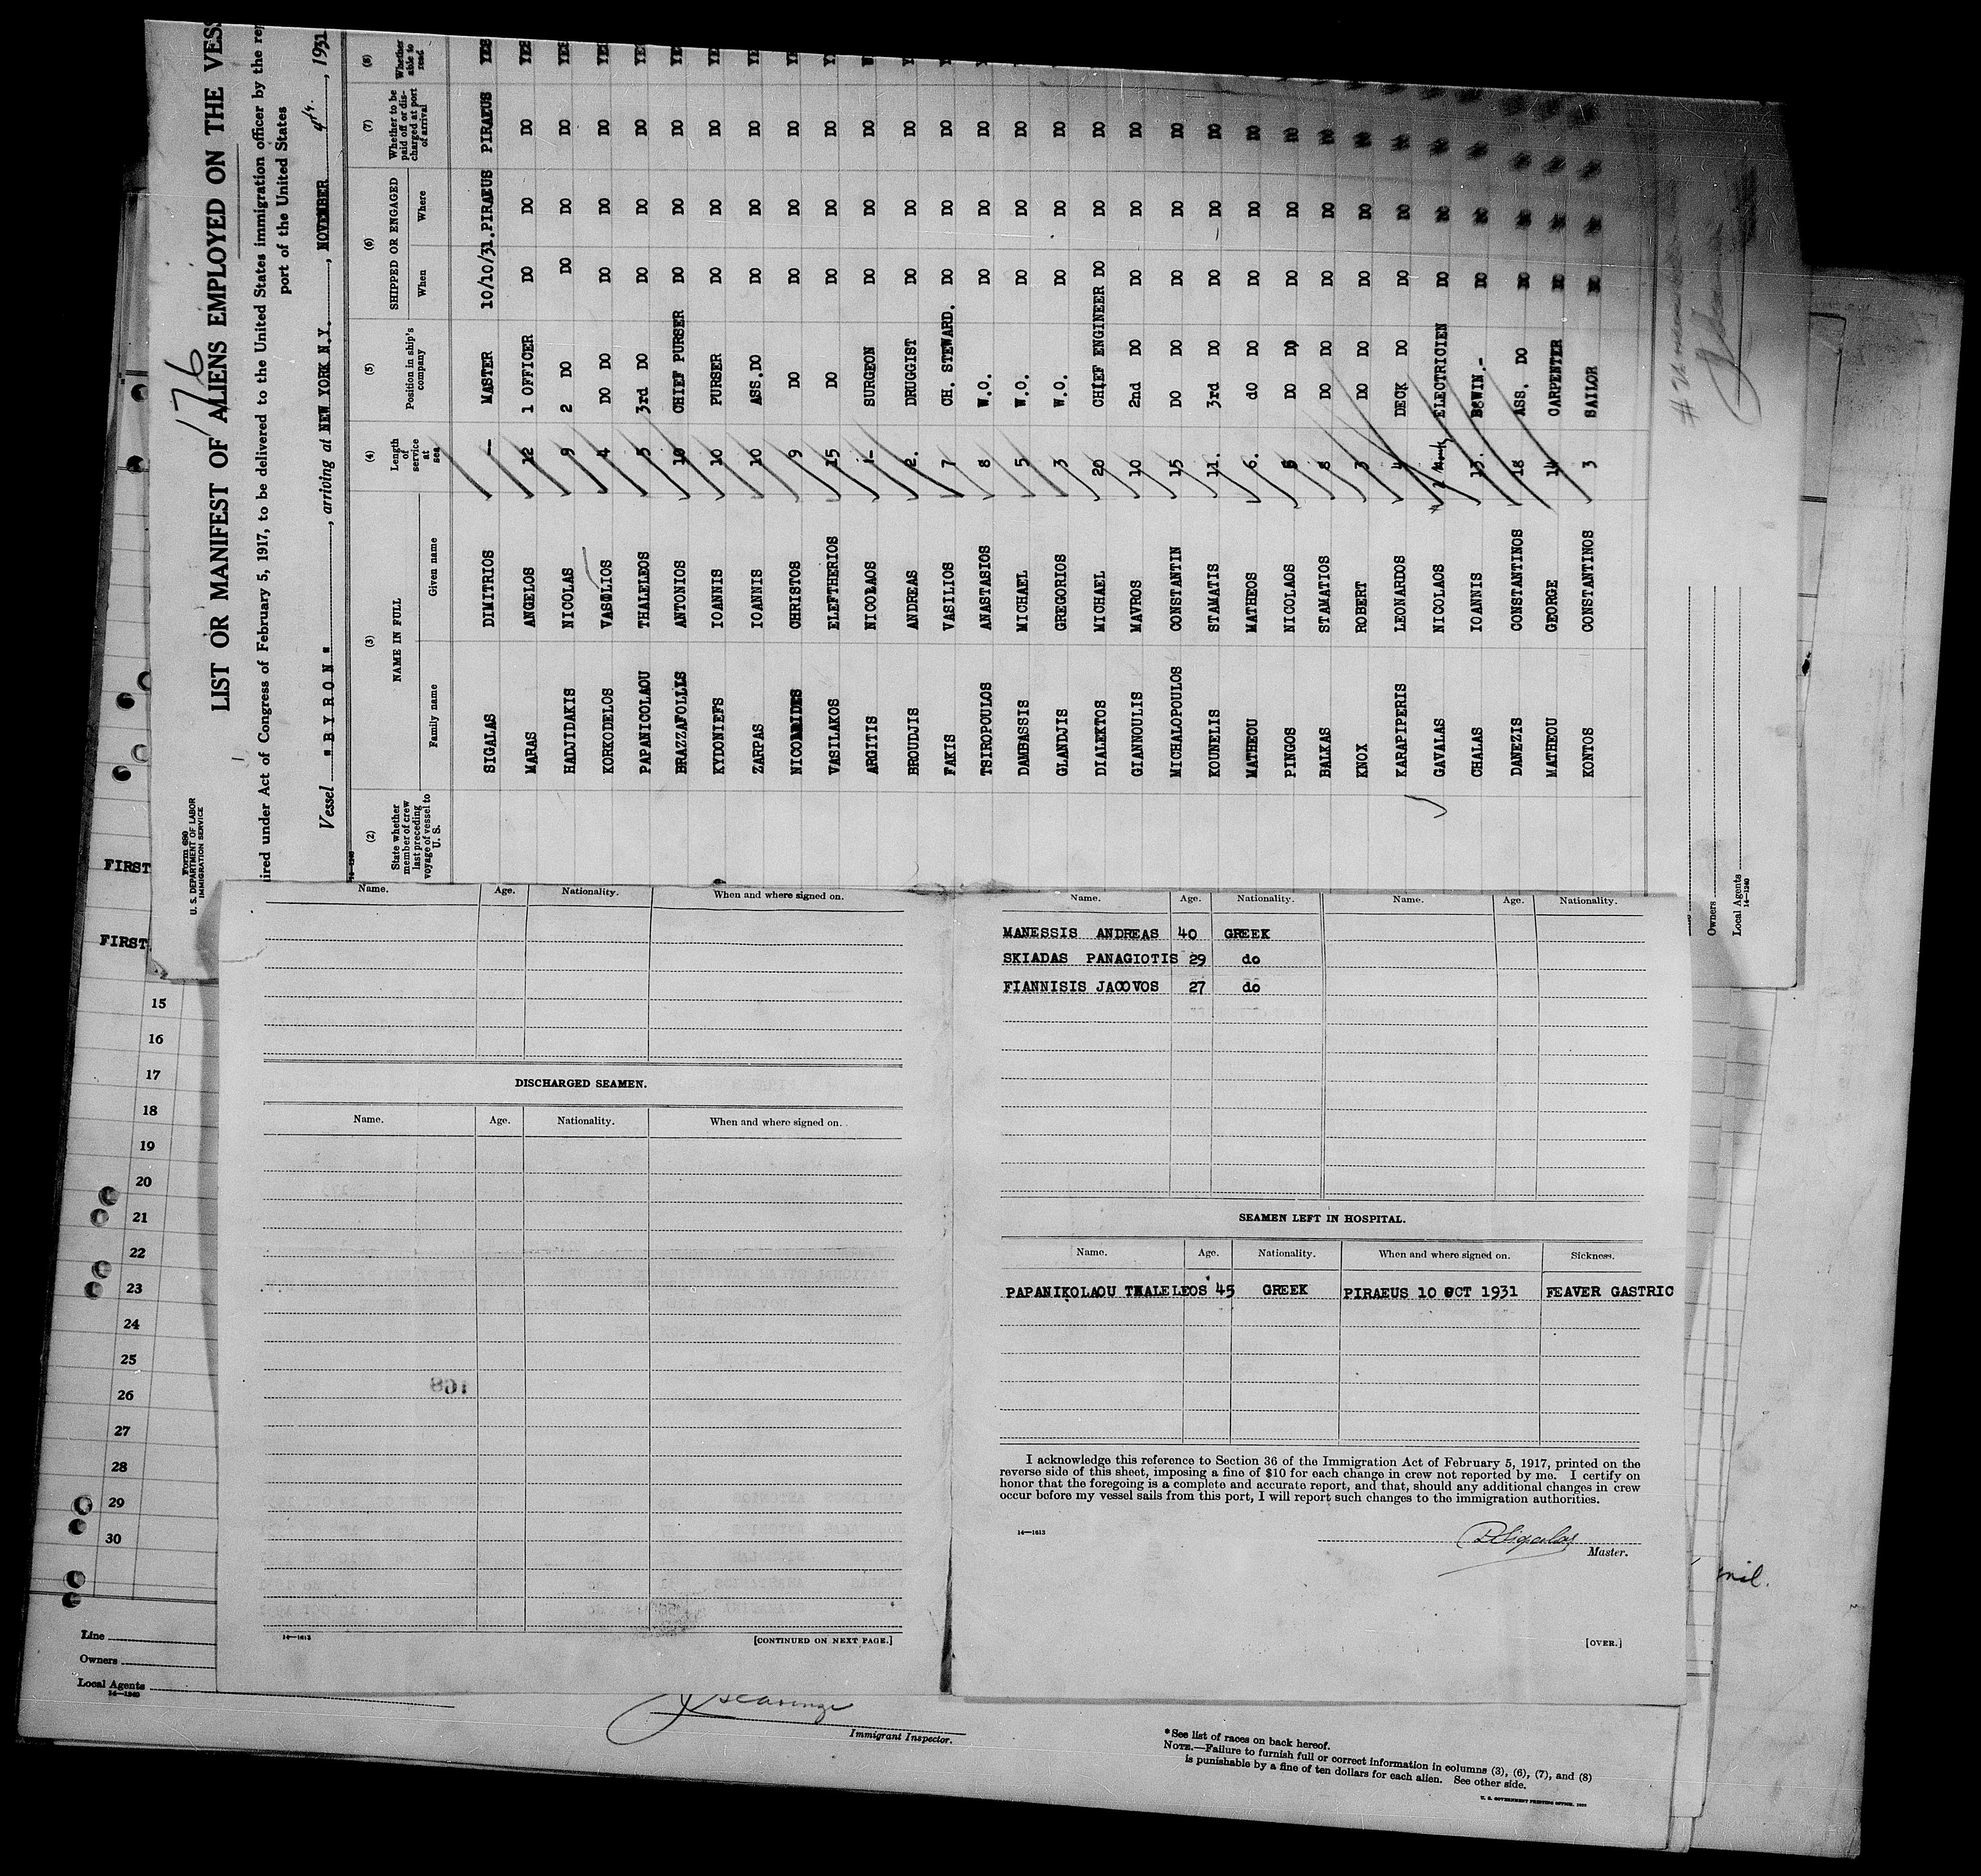 176
Form 680
U. S. DEPARTMENT OF LABOR
IMMIGRATION SERVICE
LIST OR MANIFEST OF ALIENS EMPLOYED ON THE VESS
ired under Act of Congress of February 5, 1917, to be delivered to the United States immigration officer by the rep
port of the United States
Vessel "BYRON", arriving at NEW YORK N.Y., NOVEMBER 4th., 1931
(2) (3) (4) (5) (6) (7) (8)
State whether member of crew last preceding voyage of vessel to U. S.
NAME IN FULL
Family name Given name
Length of service at sea
Position in ship's company
SHIPPED OR ENGAGED
When Where
Whether to be paid off or discharged at port of arrival
Whether able to read
SIGALAS DIMITRIOS — MASTER 10/10/31. PIRAEUS PIRAEUS YES
MARAS ANGELOS 12 1 OFFICER DO DO DO YES
HADJIDAKIS NICOLAS 9 2 DO DO DO DO YES
KORKODELOS VASOLIOS 4 DO DO DO DO DO YES
PAPANICOLAOU THALELEOS 5 3rd DO DO DO DO YES
BRAZZAFOLLIS ANTONIOS 10 CHIEF PURSER DO DO DO YES
KYDONIEFS IOANNIS 10 PURSER DO DO DO YE
ZARPAS IOANNIS 10 ASS.DO DO DO DO YE
CHRISTOS 9 DO DO DO DO YE
VASILAKOS ELEFTHERIOS 15 DO DO DO DO Y
ARGITIS NICOLAOS 1- SURGEON DO DO DO
BROUDJIS ANDREAS 2. DRUGGIST DO DO DO
FAKIS VASILIOS 7 CH. STEWARD. DO DO DO
TSIROPOULOS ANASTASIOS 8 W.O. DO DO DO
DAMBASSIS MICHAEL 5 W.O. DO DO DO
GLANDJIS GREGORIOS 3 W.O. DO DO DO
DIALEKTOS MICHAEL 20 CHIEF ENGINEER DO DO DO
GIANNOULIS MAVROS 10 2nd DO DO DO DO
MICHALOPOULOS CONSTANTIN 15 DO DO DO DO DO
KOUNELIS STAMATIS 11. 3rd DO DO DO DO
MATHEOU MATHEOS 6. do DO DO DO DO
PINGOS NICOLAOS DO DO DO DO DO
BALKAS STAMATIOS 8 DO DO DO DO DO
KNOX ROBERT 3 DO DO DO DO DO
KARAPIPERIS LEONARDOS 4 DECK DO DO DO DO
GAVALAS NICOLAOS ELECTRICIEN DO DO DO
CHALAS IOANNIS 13. DO DO DO
DANEZIS CONSTANTINOS 18 ASS. DO DO DO
MATHEOU GEORGE 14 CARPENTER DO DO
KONTOS CONSTANTINOS 3 SAILOR DO DO
Owners
Local Agents
14—1240
FIRST
FIRST
15
16
17
18
19
20
21
22
23
24
25
26
27
28
29
30
Line
Owners
Local Agents
14—1240
Name. Age. Nationality. When and where signed on.
DISCHARGED SEAMEN.
Name. Age. Nationality. When and where signed on.
14—1613
[CONTINUED ON NEXT PAGE.]
Name. Age. Nationality. Name. Age. Nationality.
MANESSIS ANDREAS 40 GREEK
SKIADAS PANAGIOTIS 29 do
FIANNISIS JACOVOS 27 do
SEAMEN LEFT IN HOSPITAL.
Name. Age. Nationality. When and where signed on. Sickness.
PAPANIKOLAOU THALELEOS 45 GREEK PIRAEUS 10 OCT 1931 FEAVER GASTRIC
I acknowledge this reference to Section 36 of the Immigration Act of February 5, 1917, printed on the
reverse side of this sheet, imposing a fine of $10 for each change in crew not reported by me. I certify on
honor that the foregoing is a complete and accurate report, and that, should any additional changes in crew
occur before my vessel sails from this port, I will report such changes to the immigration authorities.
14—1613
DSigalas
Master.
[OVER.]
Immigrant Inspector.
*See list of races on back hereof.
NOTE.—Failure to furnish full or correct information in columns (3), (6), (7), and (8)
is punishable by a fine of ten dollars for each alien. See other side.
U. S. GOVERNMENT PRINTING OFFICE.